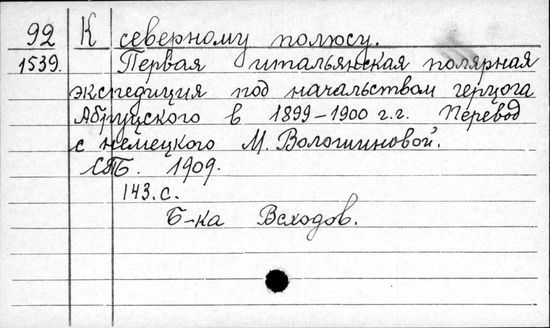 92 К северному полюсу.
1539. Первая итальянская полярная
экспедиция под начальством герцога
Абруцского в 1899-1900 г.г. Перевод
с немецкого М. Волошиновой.
СПБ. 1909.
143.с.
Б-ка Всходов.